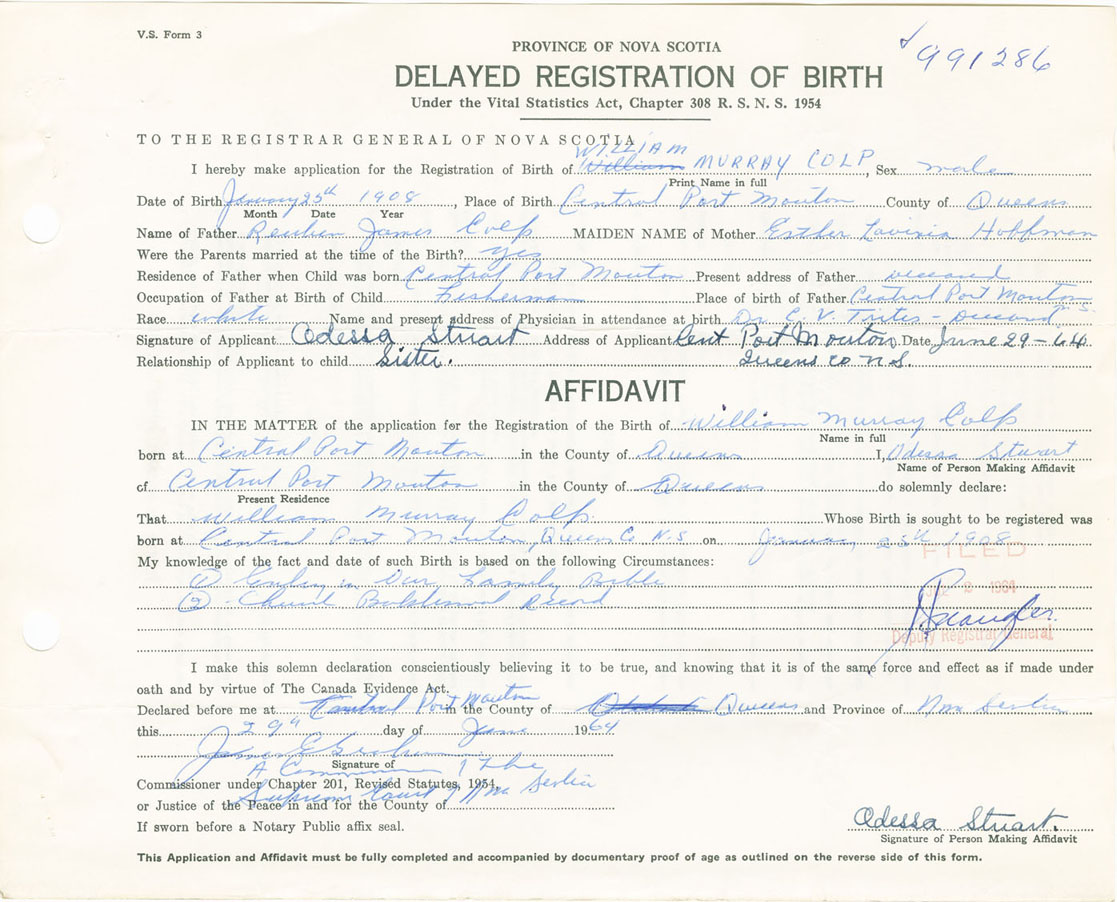 V.S. Form 3
991286
PROVINCE OF NOVA SCOTIA
DELAYED REGISTRATION OF BIRTH
Under the Vital Statistics Act, Chapter 308 R. S. N. S. 1954
TO THE REGISTRAR GENERAL OF NOVA SCOTIA
WILLIAM
I hereby make application for the Registration of Birth of William MURRAY COLP, Sex male
Print Name in full
Date of Birth January 25th 1908, Place of Birth Central Port Mouton County of Queens
Month Date Year
Name of Father Reuben James Colp MAIDEN NAME of Mother Esther Lavinia Hoffman
Were the Parents married at the time of the Birth? yes
Residence of Father when Child was born Central Port Mouton Present address of Father deceased
Occupation of Father at Birth of Child Fisherman Place of birth of Father Central Port Mouton N.S.
Race white Name and present address of Physician in attendance at birth Dr. E. V. Trites - Deceased
Signature of Applicant Odessa Stuart Address of Applicant Cent Port Mouton Date June 29-64
Relationship of Applicant to child Sister. Queens Co N.S.
AFFIDAVIT
IN THE MATTER of the application for the Registration of the Birth of William Murray Colp
Name in full
born at Central Port Mouton in the County of Queens I, Odessa Stuart
Name of Person Making Affidavit
of Central Port Mouton in the County of Queens do solemnly declare:
Present Residence
That William Murray Colp Whose Birth is sought to be registered was
born at Central Port Mouton, Queens Co N.S on January 25th 1908
FILED
My knowledge of the fact and date of such Birth is based on the following Circumstances:
① Entry in Our Family Bible
② - Church Baptismal Record
2 1964
Deputy Registrar General
I make this solemn declaration conscientiously believing it to be true, and knowing that it is of the same force and effect as if made under
oath and by virtue of The Canada Evidence Act.
Declared before me at Central Port Mouton in the County of Queens and Province of Nova Scotia
this 29th day of June 1964
James E
Signature of
A Commissioner of the
Commissioner under Chapter 201, Revised Statutes, 1954,
Supreme Court of Nova Scotia
or Justice of the Peace in and for the County of
If sworn before a Notary Public affix seal.
Odessa Stuart.
Signature of Person Making Affidavit
This Application and Affidavit must be fully completed and accompanied by documentary proof of age as outlined on the reverse side of this form.